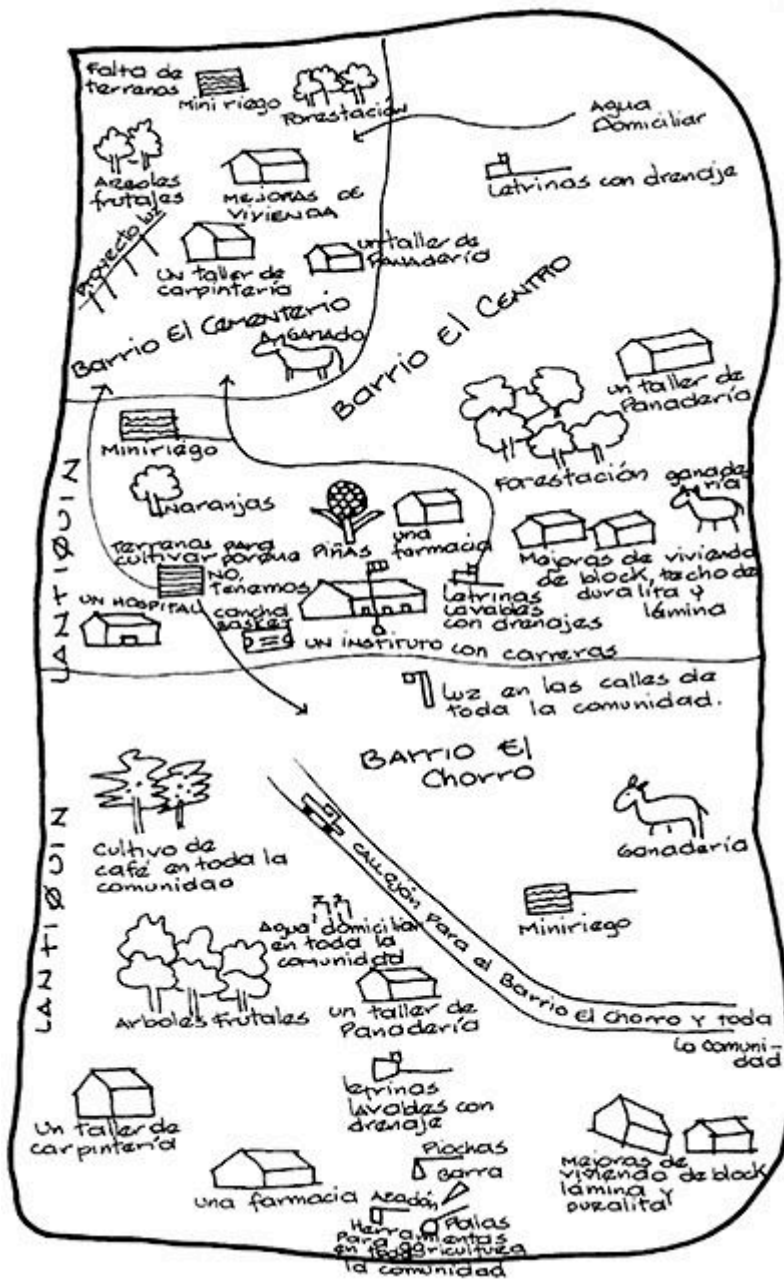 Falta de
terrenos
Mini riego
Forestación
Agua
Domiciliar
Letrinas con drenaje
Arboles
frutales
MEJORAS DE
VIVIENDA
Proyecto luz
un taller de
carpintería
un taller de
Panadería
Barrio El Cementerio
GANADO
Barrio El CENTRO
un taller de
Panadería
Miniriego
Naranjas
Forestación
ganade
ría
Piñas
una
farmacia
Mejoras de viviendo
de block, techo de
duralita y
lámina
terrenos para
cultivar porque
NO
tenemos
UN HOSPITAL
cancha
basker
UN INSTITUTO con carreras
letrinas
lavables
con drenajes
LANTIQUIN
luz en las calles de
toda la comunidad.
BARRIO El
Chorro
Cultivo de
café en toda la
comunidad
Ganadería
Callejón para el Barrio El Chorro y toda
la comuni-
dad
Miniriego
Agua domiciliar
en toda la
comunidad
LANTIQUIN
Arboles Frutales
un taller de
Panadería
letrinas
lavables con
drenaje
un taller de
carpintería
una farmacia
Piochas
Barra
Azadón
Palas
Herramientas
Para agricultura
en toda
la comunidad
Mejoras de
viviendo de block
lámina y
duralita